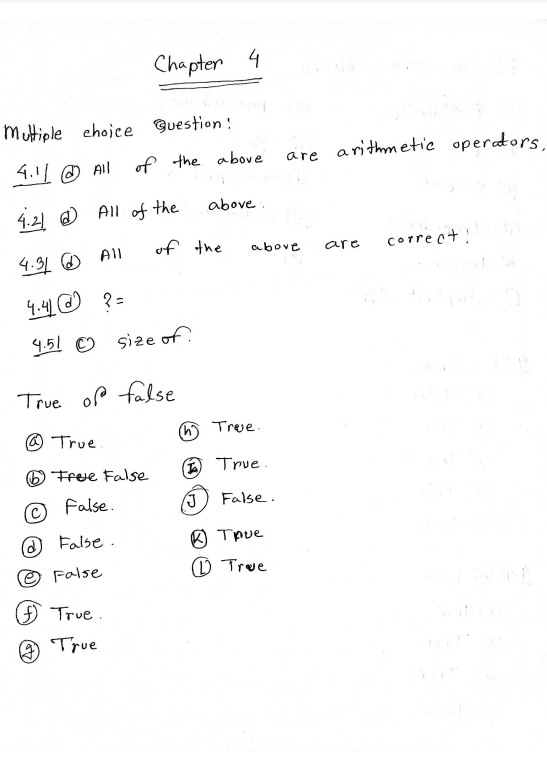 Chapter 4
Multiple choice Question:
4.1| (d) All of the above are arithmetic operators.
4.2| (d) All of the above.
4.3| (d) All of the above are correct.
4.4| (d) ?=
4.5| (c) size of.
True or false
(a) True.
(b) True False
(c) False.
(d) False.
(e) False
(f) True.
(g) True
(h) True.
(I) True.
(J) False.
(K) True
(L) True